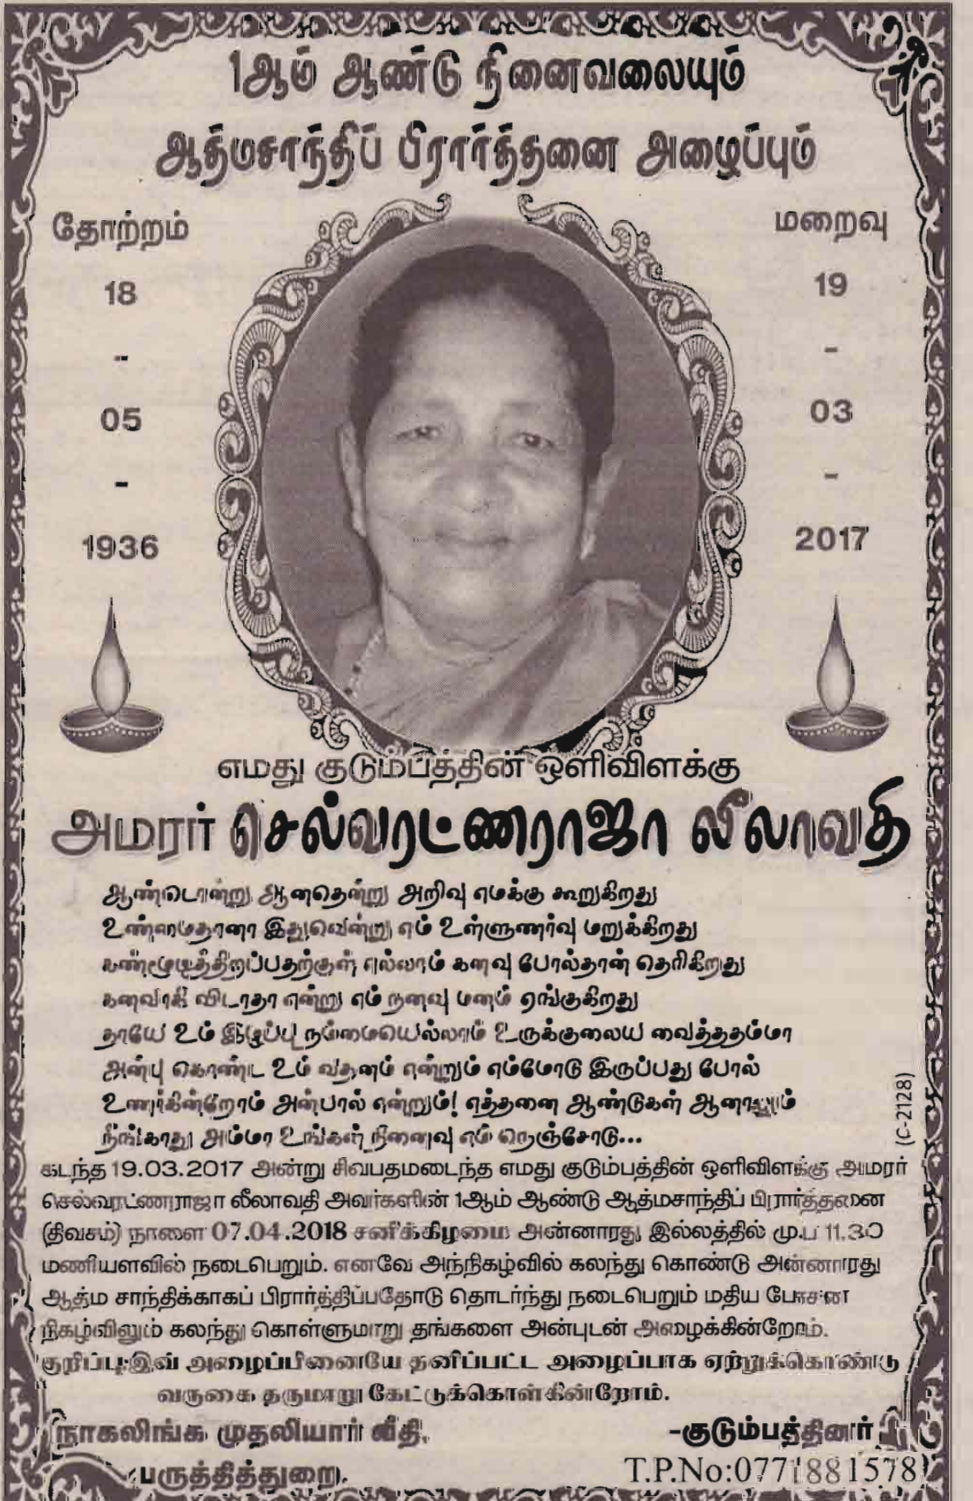 1ஆம் ஆண்டு நினைவலையும்
ஆத்மசாந்திப் பிரார்த்தனை அழைப்பும்
தோற்றம்
18
-
05
-
1936
மறைவு
19
-
03
-
2017
எமது குடும்பத்தின் ஒளிவிளக்கு
அமரர் செல்வரட்ணராஜா லீலாவதி
ஆண்டொன்று ஆனதென்று அறிவு எமக்கு கூறுகிறது
உண்மைதானா இதுவென்று எம் உள்ளுணர்வு மறுக்கிறது
கண்மூடித்திறப்பதற்குள் எல்லாம் கனவு போல்தான் தெரிகிறது
கனவாகி விடாதா என்று எம் நனவு மனம் ஏங்குகிறது
தாயே உம் இழப்பு நம்மையெல்லாம் உருக்குலைய வைத்ததம்மா
அன்பு கொண்ட உம் வதனம் என்றும் எம்மோடு இருப்பது போல்
உணர்கின்றோம் அன்பால் என்றும்! எத்தனை ஆண்டுகள் ஆனாலும்
நீங்காது அம்மா உங்கள் நினைவு எம் நெஞ்சோடு...
(C-2128)
கடந்த 19.03.2017 அன்று சிவபதமடைந்த எமது குடும்பத்தின் ஒளிவிளக்கு அமரர்
செல்வரட்ணராஜா லீலாவதி அவர்களின் 1ஆம் ஆண்டு ஆத்மசாந்திப் பிரார்த்தனை
(திவசம்) நாளை 07.04.2018 சனிக்கிழமை அன்னாரது இல்லத்தில் மு.ப 11.30
மணியளவில் நடைபெறும். எனவே அந்நிகழ்வில் கலந்து கொண்டு அன்னாரது
ஆத்ம சாந்திக்காகப் பிரார்த்திப்பதோடு தொடர்ந்து நடைபெறும் மதிய போசன
நிகழ்விலும் கலந்து கொள்ளுமாறு தங்களை அன்புடன் அழைக்கின்றோம்.
குறிப்பு:இவ் அழைப்பினையே தனிப்பட்ட அழைப்பாக ஏற்றுக்கொண்டு
வருகை தருமாறு கேட்டுக்கொள்கின்றோம்.
நாகலிங்க முதலியார் வீதி,
பருத்தித்துறை.
-குடும்பத்தினர்
T.P.No:0771881578